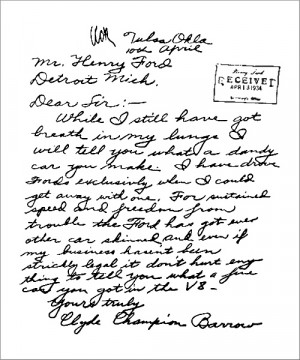 Tulsa Okla
10th April
Mr. Henry Ford
Detroit Mich.
RECEIVED
APR 13 1934
Dear Sir:—
While I still have got
breath in my lungs I
will tell you what a dandy
car you make. I have drove
Fords exclusively when I could
get away with one. For sustained
speed and freedom from
trouble the Ford has got ever
other car skinned and even if
my business hasen't been
strickly legal it don't hurt eny
thing to tell you what a fine
car you got in the V8 —
Yours truly
Clyde Champion Barrow